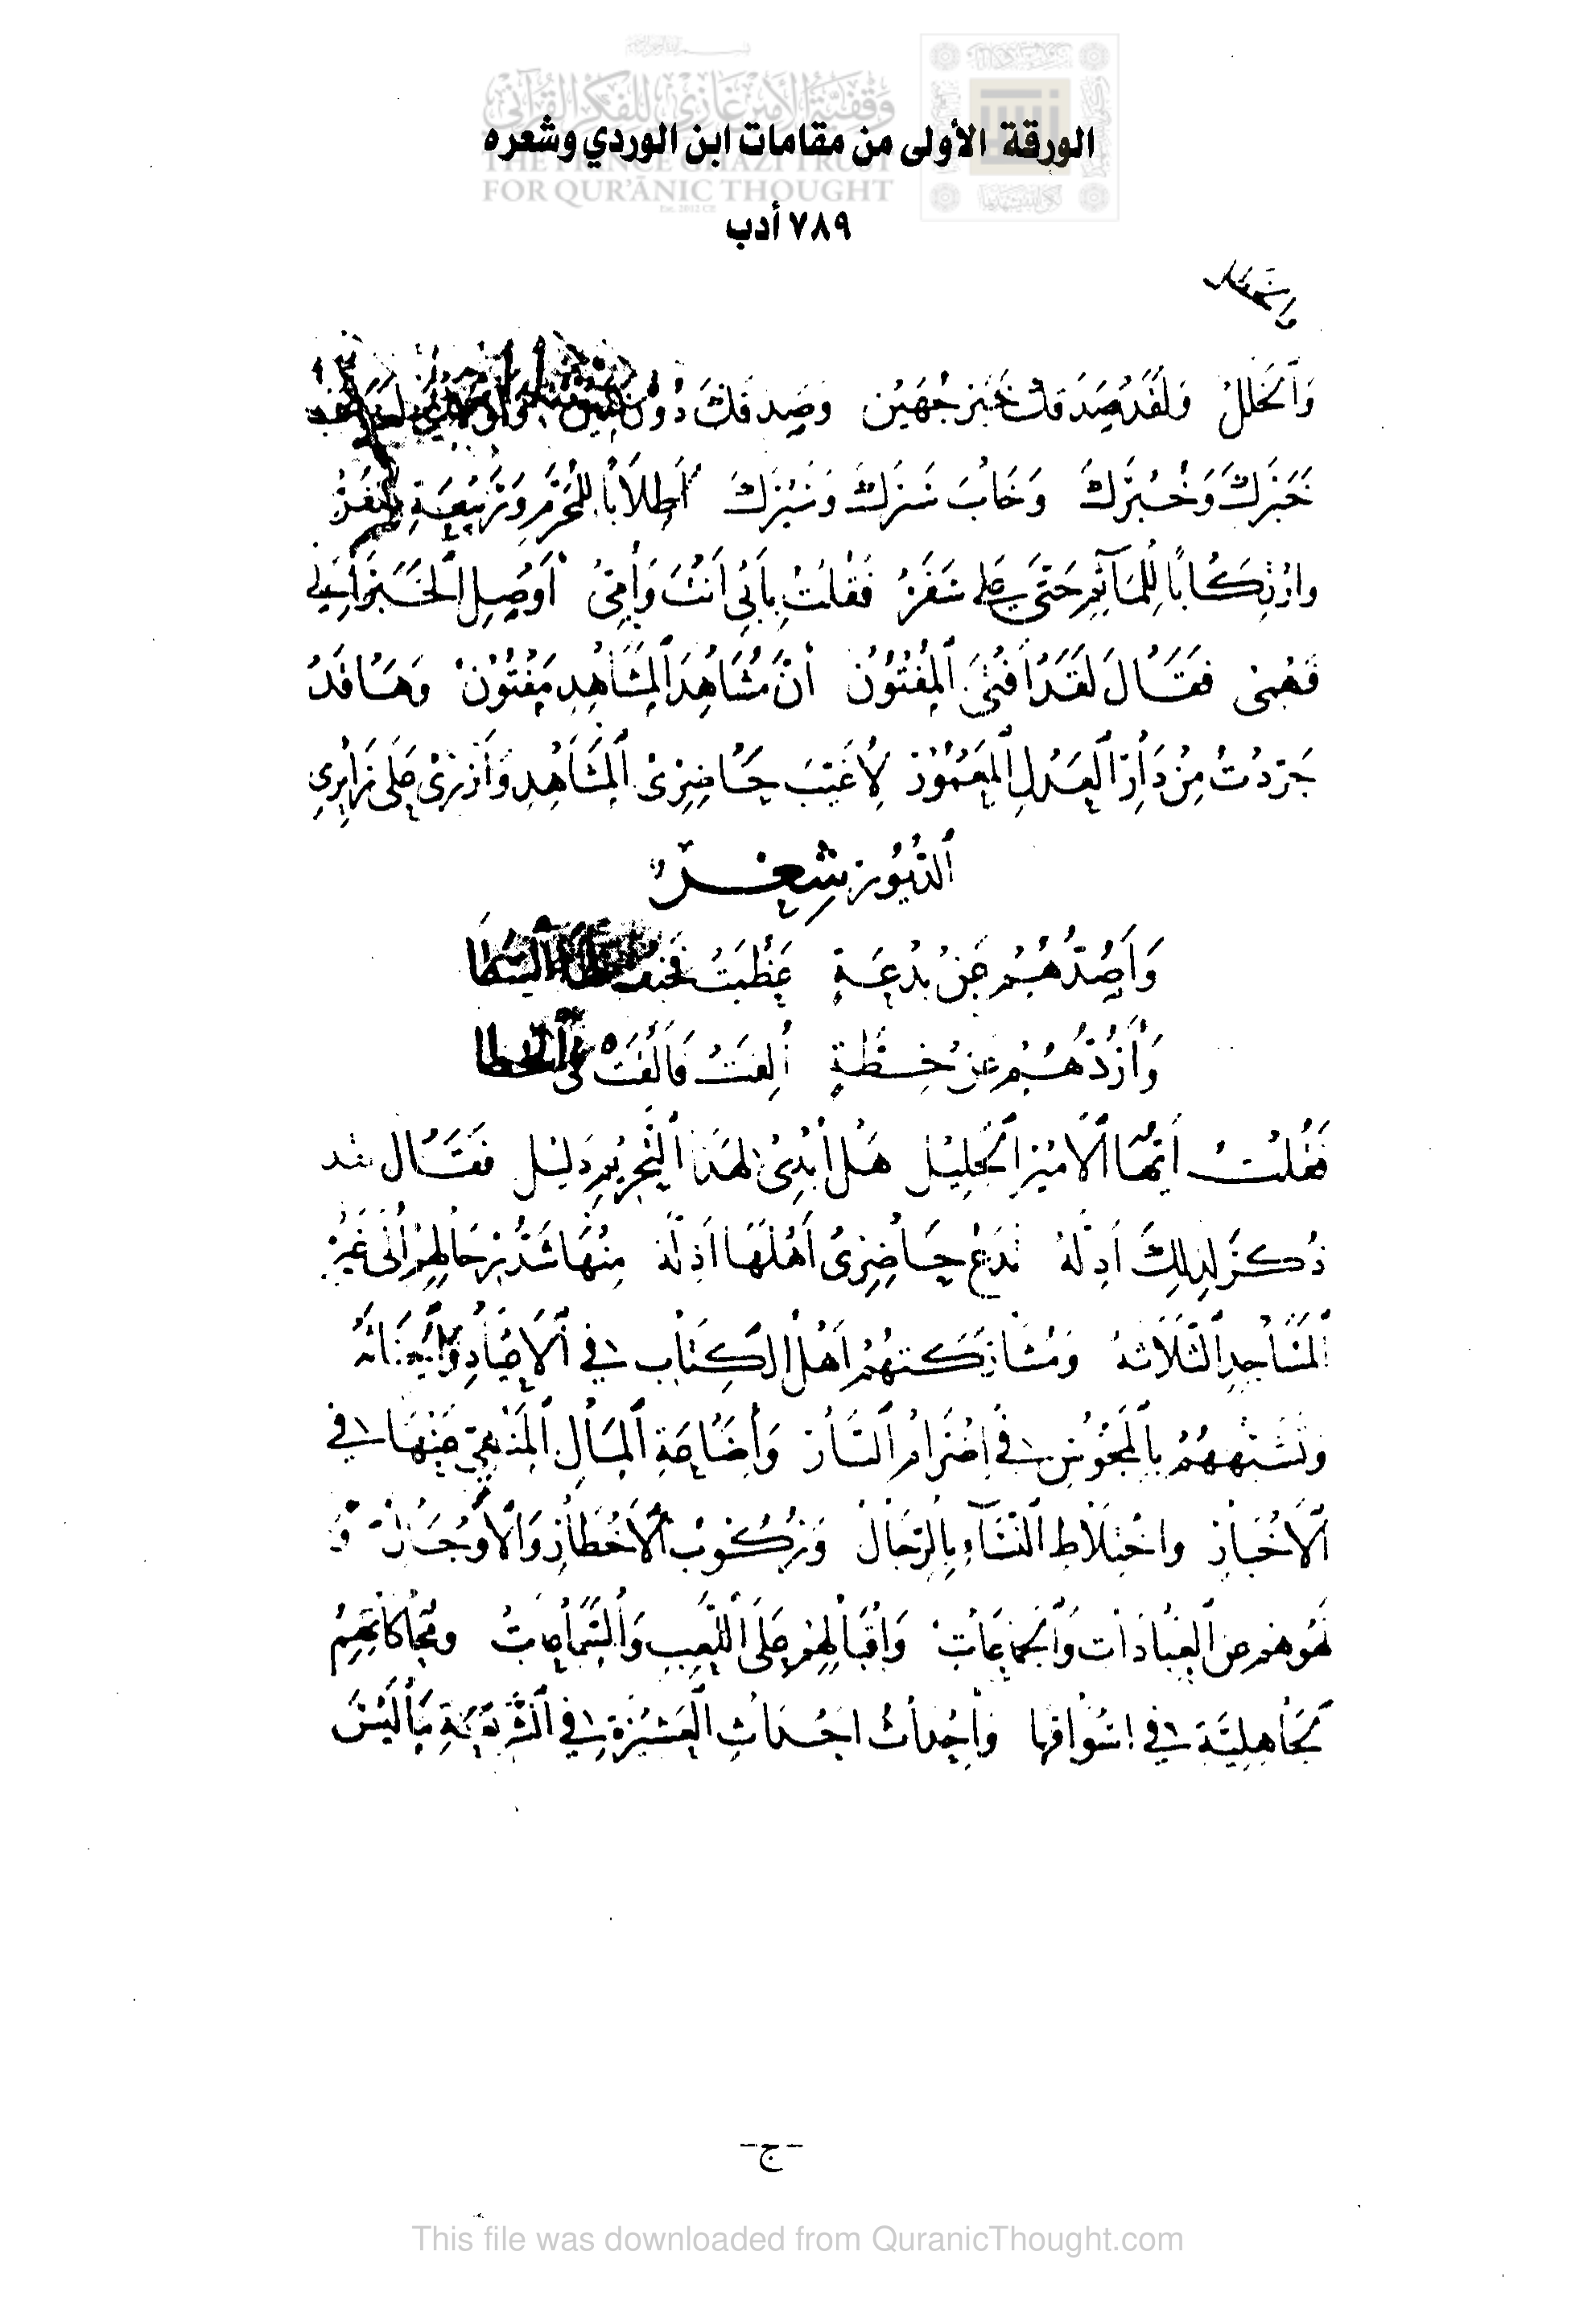 وقفية الأمير غازي للفكر القرآني
THE PRINCE GHAZI TRUST
FOR QUR'ĀNIC THOUGHT
Est. 2012 CE
الورقة الأولى من مقامات ابن الوردي وشعره
٧٨٩ أدب
وَالخَللْ وَلَقَد صَدَقَكْ خَبَر جُهَيْن وَصَدَقَكَ دُونْ
خَبَرَكَ وَخُبْرَكَ وَخَابَ سَيْرَكَ أَطِلَابًا لِلمُحَرَّمِ وَتَرْبِيْعَةِ صَفَرْ
وارْتِكَابًا لِلمَآثِمِ حَتَّى عَلى سَفَرْ فَقُلْتُ بِأَبِي أَنْتَ وَأُمِّيْ أَوْصِلِ الخَبَرَ إِلى
فَهْمِى فَقَالَ لَقَدْ أَفْتَى المُفْتُوْنْ أَنَّ مُشَاهِدَ المَشَاهِدِ مَفْتُوْنْ وَهَا قَدْ
جَرَدْتُ مِنْ دَارِ العَدلِ المَعْمُوْر لِأَعِيْبَ حَاضِرِىْ المَشَاهِدِ وَأَزْرِىْ عَلَى زَائِرِى
الدُّيُوْر شِعْرٌ
وَأَصُدُّهُمْ عَنْ بِدْعَةٍ عَظُمَتْ السُطَا
وَأَرُدُّهُمْ عَنْ خِطَّةٍ أُلِفَتْ فَأَلْقَتْ فِي الخَطا
فَقُلْتُ أَيُّهَا الأَمِيْرُ الجَلِيْل هَلْ أُبْدِىْ لِهَذَا التَّحْرِيْمِ دَلِيْل فَقَالَ قد
ذُكَرَ لِذلِكَ أَدِلَّهْ تَدَعْ حَاضِرِىْ أَهْلَهَا أَذِلَّهْ مِنْهَا شَدُّ رِحَالِهِمْ إِلَى غَيْرِ
المَسَاجِدِ الثَّلَاثَهْ وَمُشَارَكَتهُمْ أَهْلَ الكِتَاب فِي الأَعْيَادِ
وَتَشَبُّهُهُمْ بِالمَجُوْسِ فِي إِضْرَامِ النَّارْ وَإِضَاعَةِ المَالِ المَنْهِيِّ عَنْهَا فِي
الأَخْبَارْ واخْتِلَاطِ النِّسَاءِ بِالرِّجَالْ وَرُكُوْبِ الأَخْطَارِ وَالأَوْجَالْ وَ
لَهْوِهِمْ عَن العِبَادَات وَالجَمَاعَاتْ وَإِقْبَالِهِمْ عَلَى اللَّعِبِ وَالسَّمَاعَاتْ وَمُحَاكَاتِهِمْ
لجَاهِلِيَّة فِي أَسْوَاقها وَإِحْدَاثْ أَحْدَاثِ العَشِيْرَةِ فِي الشَّرِيْعَةِ مَا لَيْسَ
-ج-
This file was downloaded from QuranicThought.com